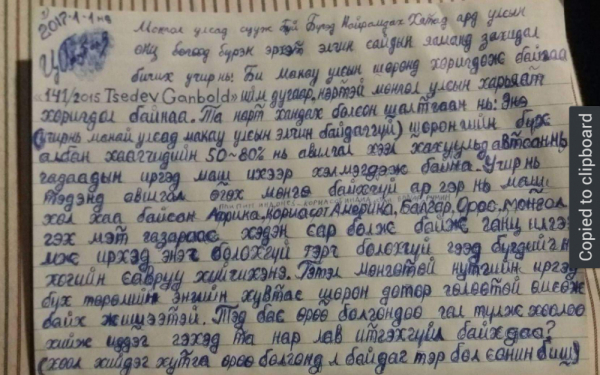 2017-1-1-нд
Монгол улсад сууж буй Бүгд Найрамдах Хятад ард улсын
онц бөгөөд бүрэн эрхэт элчин сайдын яаманд захидал
бичих учир нь: Би Макау улсын шоронд хоригдож байгаа
"141/2015 Tsedev Ganbold" гэм дугаар, нэртэй монгол улсын харьяат
хоригдол байнаа. Та нарт хандах болсон шалтгаан нь: Энэ
(учир нь манай улсад макау улсын элчин байдаггүй) шоронгийн бүх
албан хаагчидийн 50~80% нь авилгал хээл хахуульд автсан нь
гадаадын иргэд маш ихээр хэлмэгдэж байна. Учир нь
тэдэнд авилгал өгөх мөнгө байхгүй ар гэр нь маш
хол хаа байсан Африка, Америка, Балгар, Орос, Монгол
гэх мэт газараас хэдэн сар болж байж ганц илгээ
мж ирхэд энэ болохгүй тэр болохгүй гээд бүгдийг нь
хогийн савруу хийчихэнэ. Гэтэл мөнгөтэй нутгийн иргэд
бүх төрөлийн энгийн хувтас шорон дотор гөлөөтэй өмсөж
байх жишээтэй. Тэд бас өрөө болгондоо гал түлж хоолоо
хийж иддэг гэхэд та нар лав итгэхгүй байх даа?
(хоол хийдэг хутга өрөө болгонд л байдаг тэр бол сонин биш)
Copied to clipboard